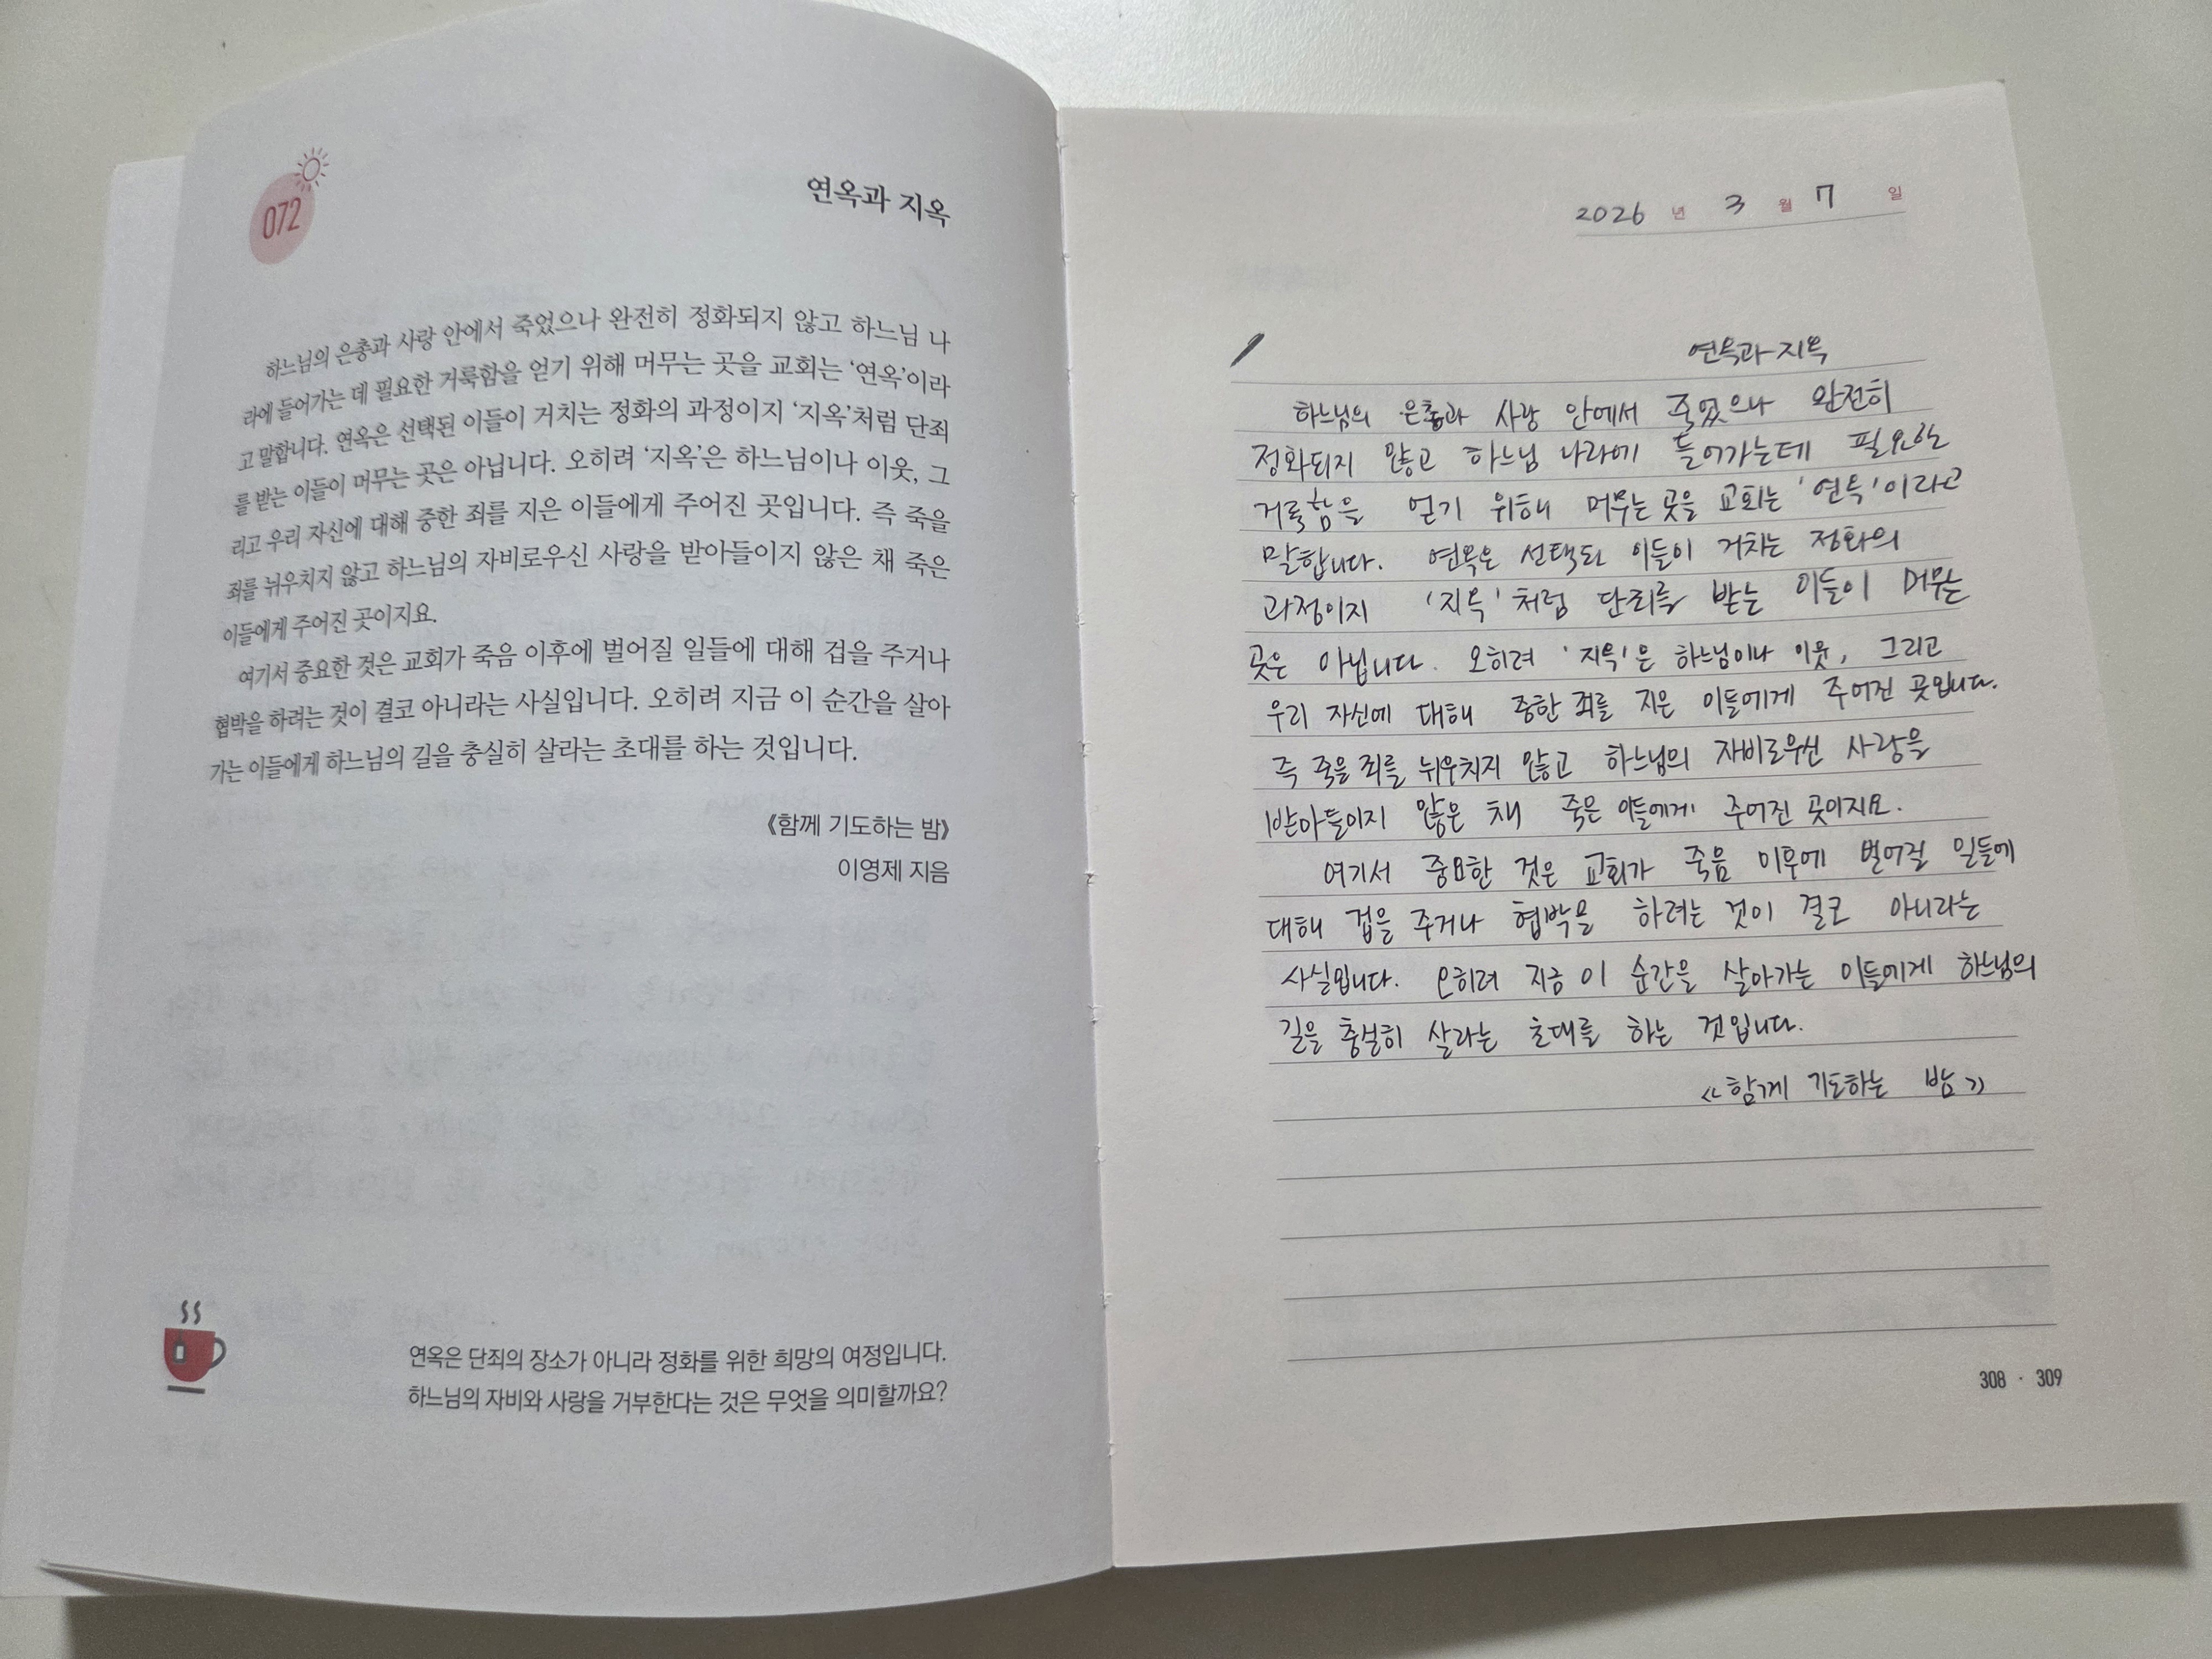 072
연옥과 지옥
하느님의 은총과 사랑 안에서 죽었으나 완전히 정화되지 않고 하느님 나
라에 들어가는 데 필요한 거룩함을 얻기 위해 머무는 곳을 교회는 ‘연옥’이라
고 말합니다. 연옥은 선택된 이들이 거치는 정화의 과정이지 ‘지옥’처럼 단죄
를 받는 이들이 머무는 곳은 아닙니다. 오히려 ‘지옥’은 하느님이나 이웃, 그
리고 우리 자신에 대해 중한 죄를 지은 이들에게 주어진 곳입니다. 즉 죽을
죄를 뉘우치지 않고 하느님의 자비로우신 사랑을 받아들이지 않은 채 죽은
이들에게 주어진 곳이지요.
여기서 중요한 것은 교회가 죽음 이후에 벌어질 일들에 대해 겁을 주거나
협박을 하려는 것이 결코 아니라는 사실입니다. 오히려 지금 이 순간을 살아
가는 이들에게 하느님의 길을 충실히 살라는 초대를 하는 것입니다.
《함께 기도하는 밤》
이영제 지음
연옥은 단죄의 장소가 아니라 정화를 위한 희망의 여정입니다.
하느님의 자비와 사랑을 거부한다는 것은 무엇을 의미할까요?
2026 년 3 월 7 일
연옥과 지옥
하느님의 은총과 사랑 안에서 죽었으나 완전히
정화되지 않고 하느님 나라에 들어가는데 필요한
거룩함을 얻기 위해 머무는 곳을 교회는 '연옥'이라고
말합니다. 연옥은 선택된 이들이 거치는 정화의
과정이지 '지옥'처럼 단죄를 받는 이들이 머무는
곳은 아닙니다. 오히려 '지옥'은 하느님이나 이웃, 그리고
우리 자신에 대해 중한 죄를 지은 이들에게 주어진 곳입니다.
즉 죽을 죄를 뉘우치지 않고 하느님의 자비로우신 사랑을
받아들이지 않은 채 죽은 이들에게 주어진 곳이지요.
여기서 중요한 것은 교회가 죽음 이후에 벌어질 일들에
대해 겁을 주거나 협박을 하려는 것이 결코 아니라는
사실입니다. 오히려 지금 이 순간을 살아가는 이들에게 하느님의
길을 충실히 살라는 초대를 하는 것입니다.
《함께 기도하는 밤》
308 · 309